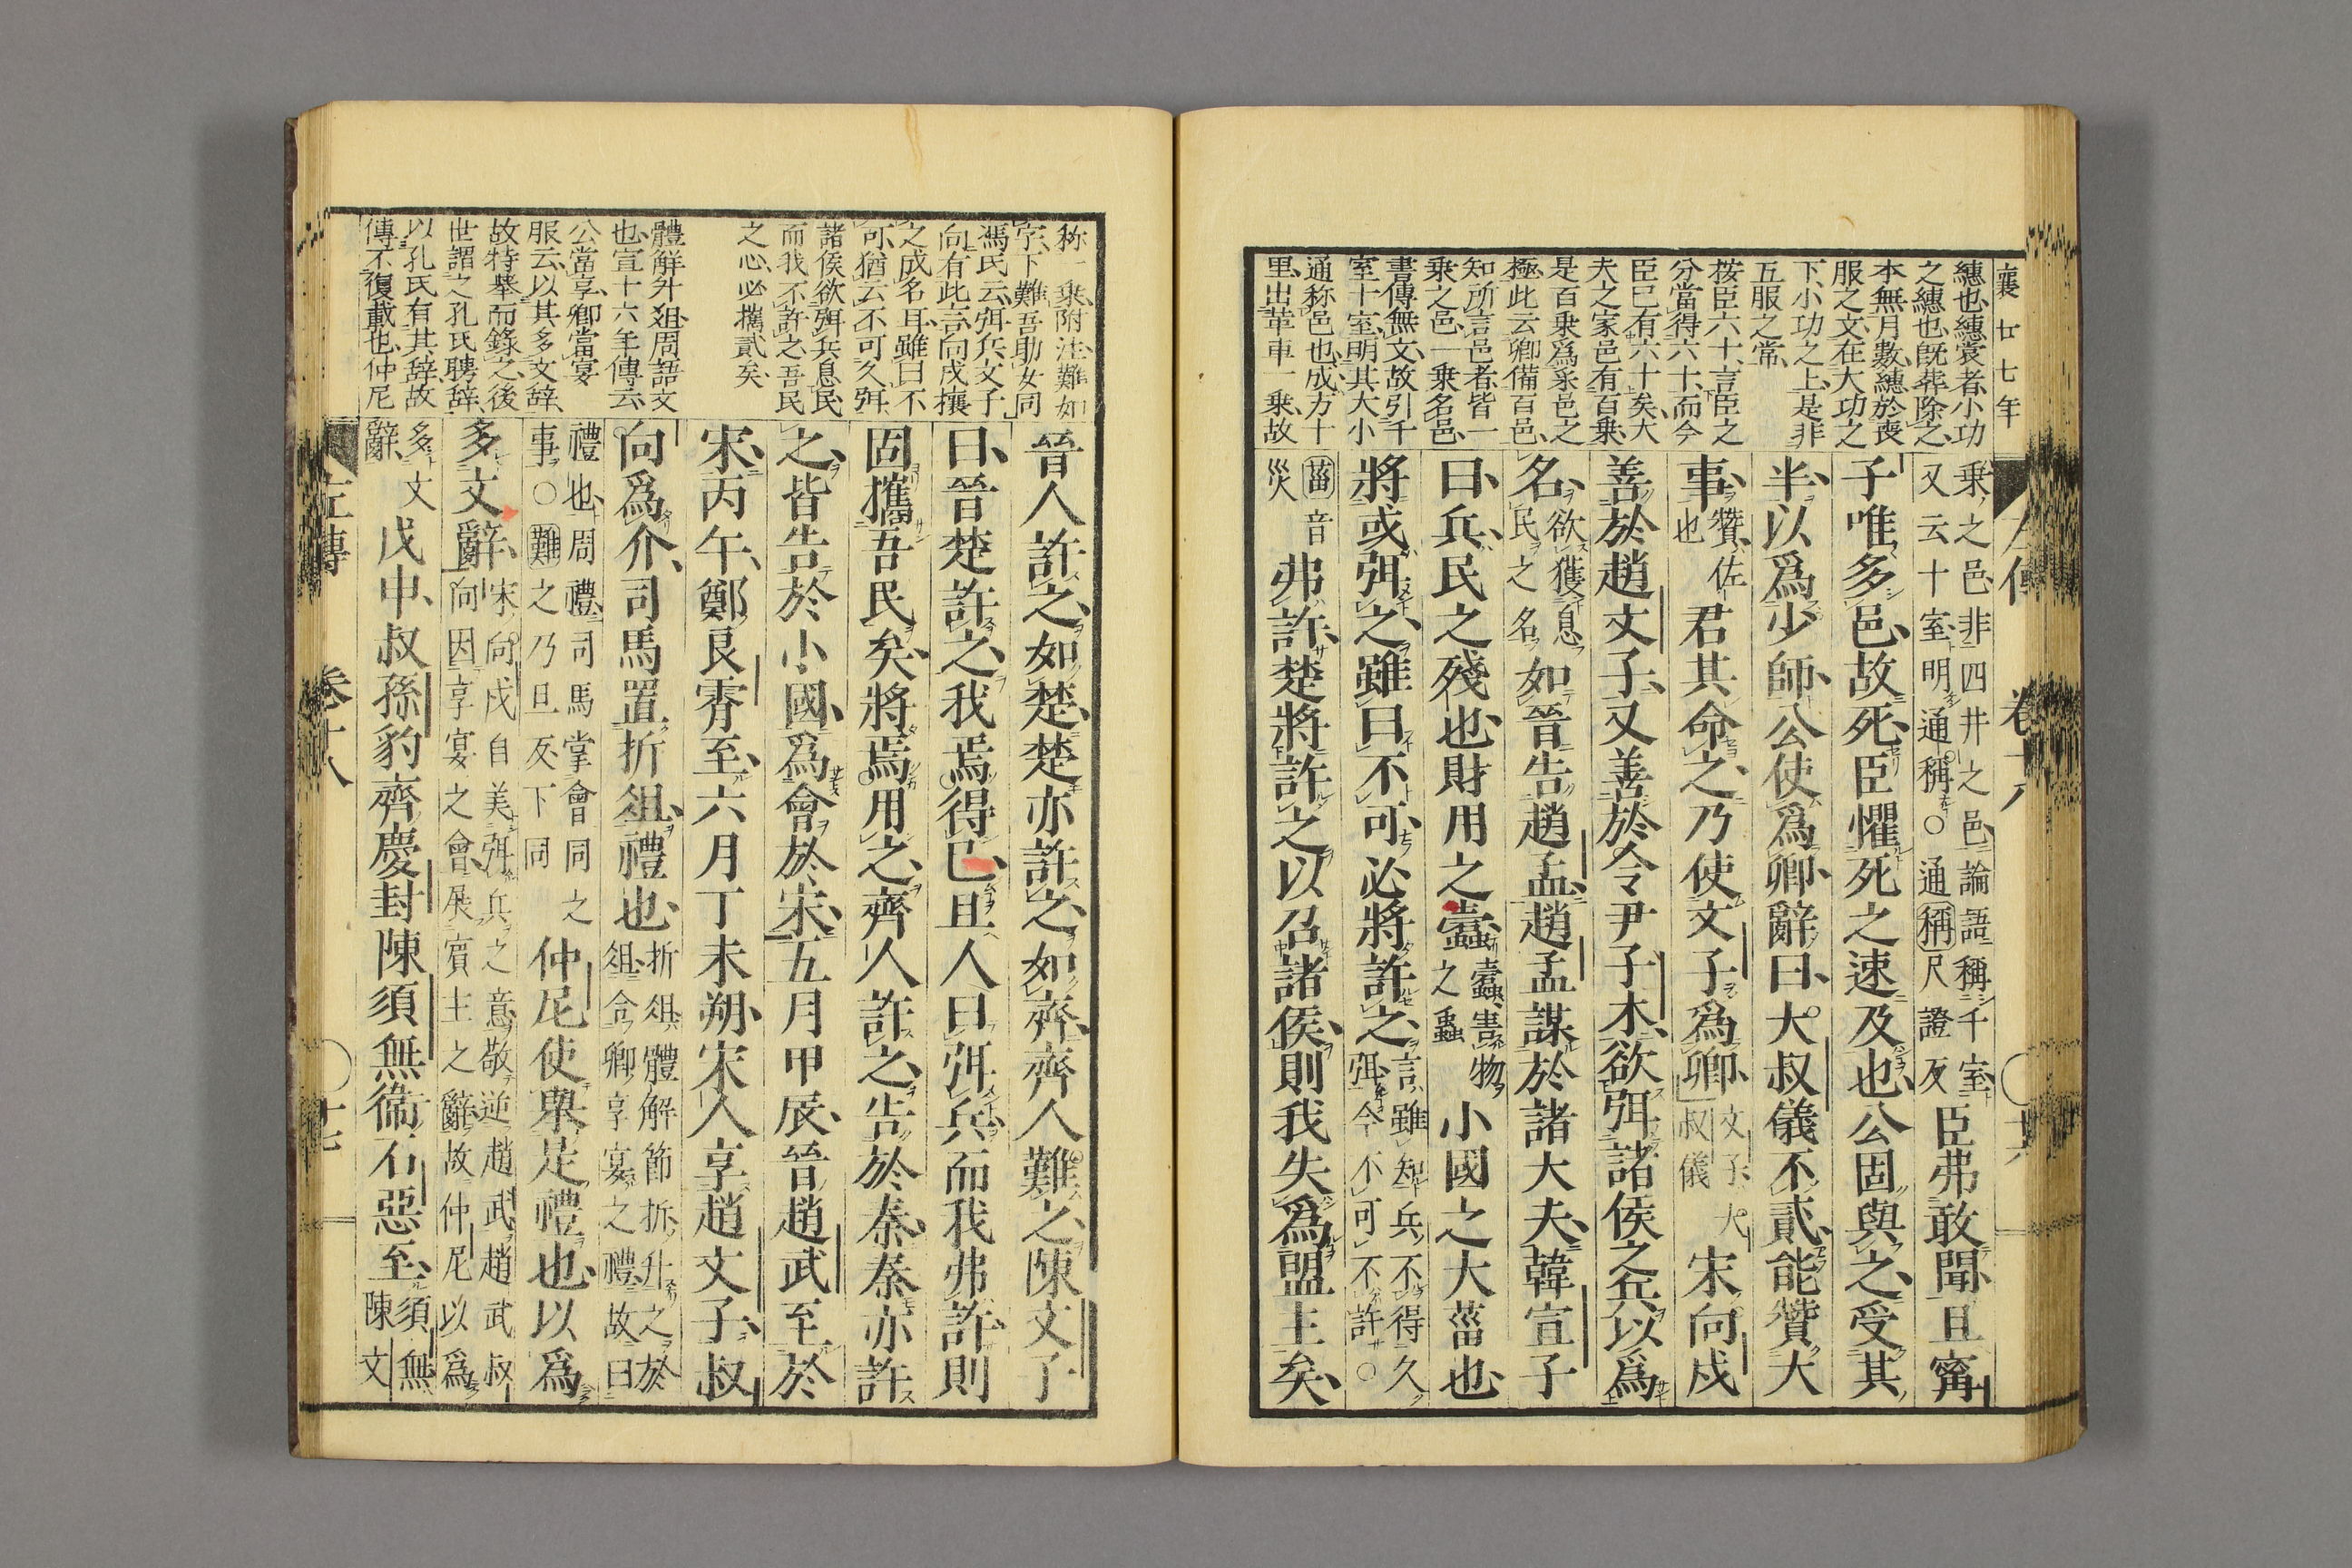 襄廿七年
繐也繐衰者小功
之繐也旣葬除之
本無月數繐於喪
服之文在大功之
下小功之上是非
五服之常
按臣六十言臣之
分當得六十而今
臣已有六十矣大
夫之家邑有百乗
是百乗爲采邑之
極此云卿備百邑
知所言邑者皆一
乗之邑一乗名邑
書傳無文故引千
室十室明其大小
通称邑也成方十
里出革車一乗故
乗之邑非四井之邑論語稱千室
又云十室明通稱○通稱尺證反
臣弗敢聞且甯
子唯多邑故死臣懼死之速及也公固與之受其
半以爲少師公使爲卿辭曰大叔儀不貳能贊大
事
贊佐
也
君其命之乃使文子爲卿
文子大
叔儀
宋向戌
善於趙文子又善於令尹子木欲弭諸侯之兵以爲
名
欲獲息
民之名
如晉告趙孟趙孟謀於諸大夫韓宣子
曰兵民之殘也財用之蠹
蠹害物
之蟲
小國之大菑也
將或弭之雖曰不可必將許之
言雖知兵不得久
弭今不可不許○
菑音
災
弗許楚將許之以召諸侯則我失爲盟主矣
称一乗附注難如
字下難吾助女同
馮氏云弭兵文子
向有此言向戌攘
之成名耳雖曰不
可猶云不可久弭
諸侯欲弭兵息民
而我不許之吾民
之心必攜貳矣
體解升俎周語文
也宣十六年傳云
公當享卿當宴
服云以其多文辭
故特舉而錄之後
世謂之孔氏聘辭
以孔氏有其辭故
傳不復載也仲尼
晉人許之如楚楚亦許之如齊齊人難之陳文子
曰晉楚許之我焉得已且人曰弭兵而我弗許則
固攜吾民矣將焉用之齊人許之告於秦秦亦許
之皆告於小國爲會於宋五月甲辰晉趙武至於
宋丙午鄭良霄至六月丁未朔宋人享趙文子叔
向爲介司馬置折俎禮也
折俎體解節折升之於
俎合卿享宴之禮故曰
禮也周禮司馬掌會同之
事○難之乃旦反下同
仲尼使舉是禮也以爲
多文辭
宋向戌自美弭兵之意敬逆趙武趙武叔
向因享宴之會展賓主之辭故仲尼以爲
多文
辭
戊申叔孫豹齊慶封陳須無衞石惡至
須無
陳文
左傳　卷十八　十七